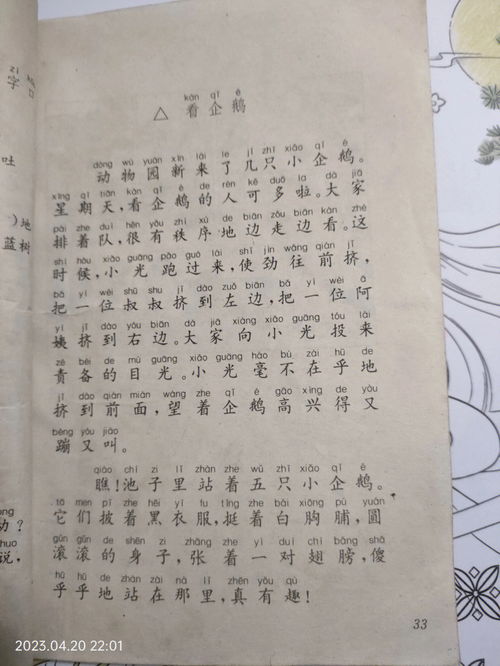 zì
字 口
吐
)地
蓝 树
dòng
动？
shuō
说，
kàn qǐ é
△ 看企鹅
dòng wù yuán xīn lái le jǐ zhī xiǎo qǐ é
动物园新来了几只小企鹅。
xīng qī tiān kàn qǐ é de rén kě duō la dà jiā
星期天,看企鹅的人可多啦。大家
pái zhe duì hěn yǒu zhì xù de biān zǒu biān kàn zhè
排着队,很有秩序地边走边看。这
shí hou xiǎo guāng pǎo guò lái shǐ jìn wǎng qián jǐ
时候,小光跑过来,使劲往前挤,
bǎ yí wèi shū shu jǐ dào zuǒ biān bǎ yí wèi ā
把一位叔叔挤到左边,把一位阿
yí jǐ dào yòu biān dà jiā xiàng xiǎo guāng tóu lái
姨挤到右边。大家向小光投来
zé bèi de mù guāng xiǎo guāng háo bú zài hū de
责备的目光。小光毫不在乎地
jǐ dào qián miàn wàng zhe qǐ é gāo xìng de yòu
挤到前面,望着企鹅高兴得又
bèng yòu jiào
蹦又叫。
qiáo chí zi lǐ zhàn zhe wǔ zhī xiǎo qǐ é
瞧!池子里站着五只小企鹅。
tā men pī zhe hēi yī fu tǐng zhe bái xiōng pú yuán
它们披着黑衣服,挺着白胸脯,圆
gǔn gǔn de shēn zi zhāng zhe yí duì chì bǎng shǎ
滚滚的身子,张着一对翅膀,傻
hū hū de zhàn zài nà lǐ zhēn yǒu qù
乎乎地站在那里,真有趣!
33
2023.04.20 22:01